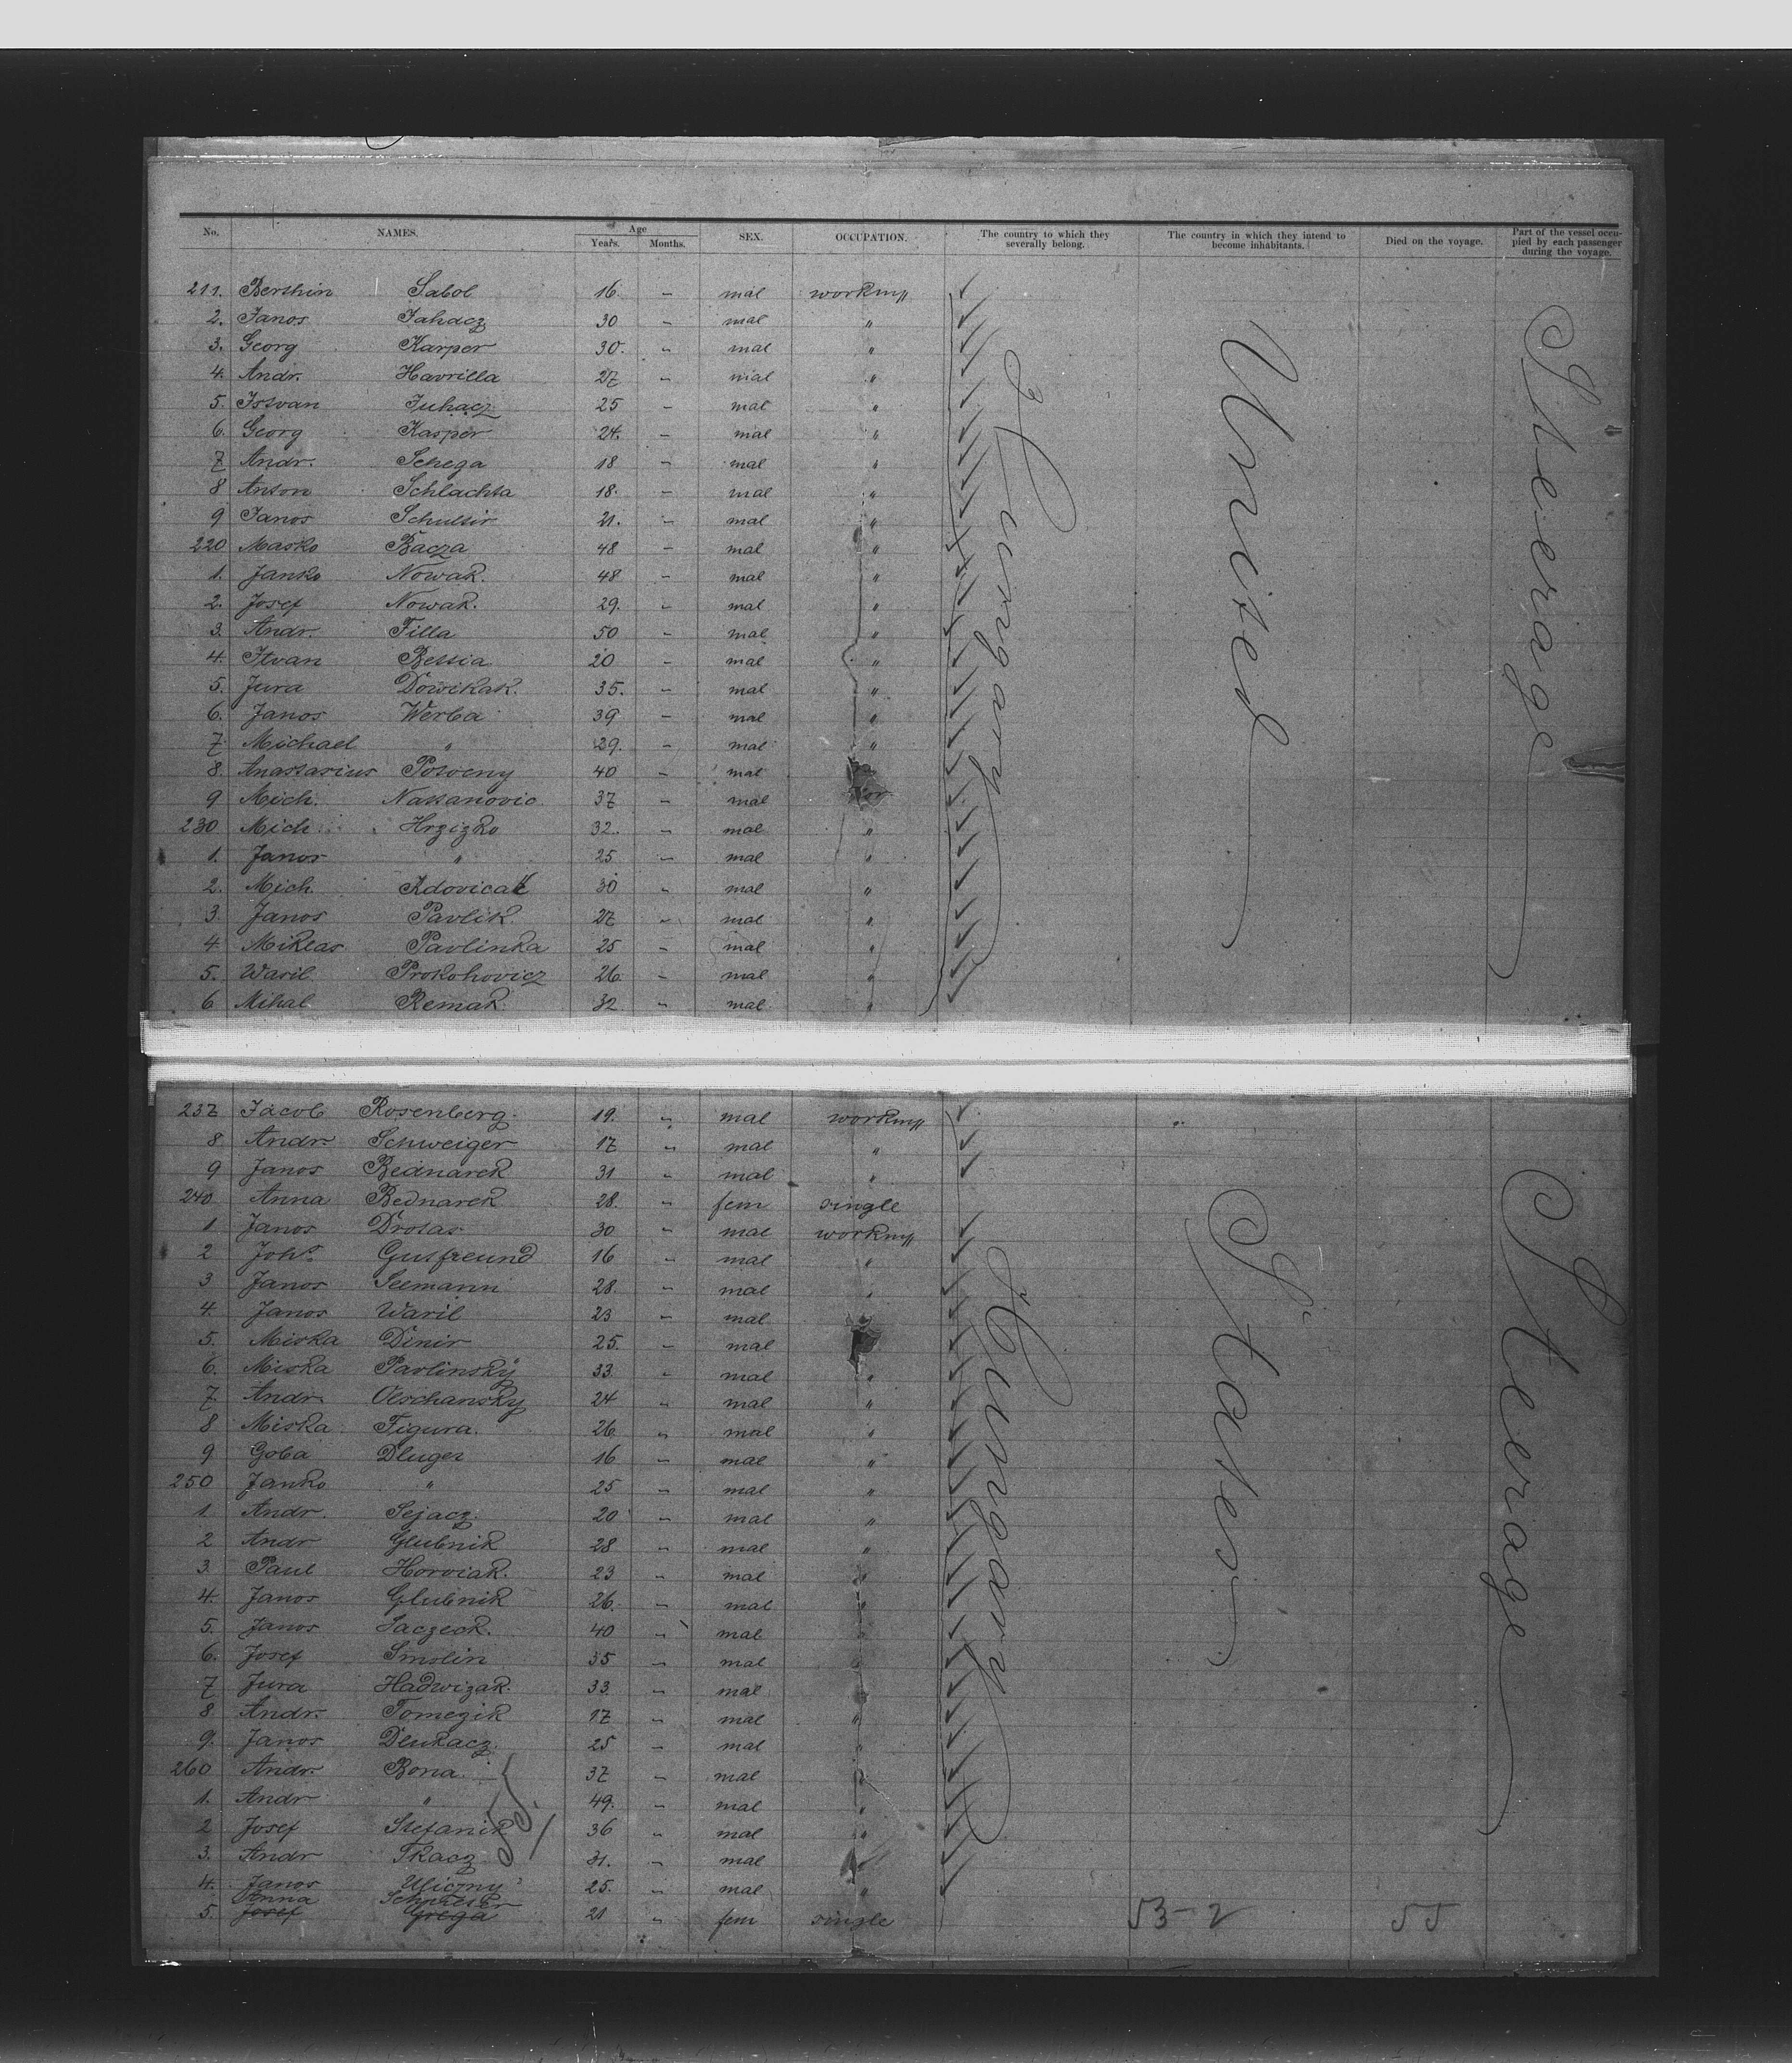 No. NAMES. Age Years. Months. SEX. OCCUPATION. The country to which they severally belong. The country in which they intend to become inhabitants. Died on the voyage. Part of the vessel occupied by each passenger during the voyage.
211. Berthin Sabol 16. – mal workm
2. Janos Jahacz 30 – mal "
3. Georg Karper 30. – mal "
4. Andr. Havrilla 27 – mal "
5. Istvan Juhacz 25 – mal "
6. Georg Kasper 24. – mal "
7 Andr. Schega 18 – mal "
8 Anton Schlachta 18. – mal "
9 Janos Schultir 21. – mal "
220 Masko Bacza 48 – mal "
1. Janko Nowak. 48 – mal "
2. Josef Nowak. 29. – mal "
3. Andr. Filla 50 – mal "
4. Itvan Bessia 20 – mal "
5. Jura Dowikak. 35. – mal "
6. Janos Werba 39 – mal "
7. Michael " 29. – mal "
8. Anastasius Potoceny 40 – mal
9 Mich. Nassanovic 37 – mal
230 Mich. Hrzizko 32. – mal "
1. Janos " 25 – mal "
2. Mich Adovicak 30 – mal "
3. Janos Pavlik 27 – mal "
4 Miklas Pavlinka 25 – mal "
5. Wasil Prokohovicz 26 – mal "
6 Mihal Remak 32 – mal "
Hungary
United
Steerage
237 Jacob Rosenberg. 19. " mal workm
8 Andr. Schweiger 17 " mal "
9 Janos Bednarek 31 " mal "
240 Anna Bednarek 28. " fem single
1 Janos Drotar 30 " mal workm
2 Johs. Gutfreund 16 " mal "
3 Janos Seemann 28. " mal "
4. Janos Wasil 23 " mal
5. Miska Dinir 25. – mal
6. Miska Pavlinsky 33 " mal "
7. Andr. Olschansky 24 " mal "
8 Miska Figura. 26 " mal "
9 Goba Dluger 16 – mal "
250 Janko " 25 " mal "
1. Andr. Sejacz. 20 " mal "
2 Andr Glubnik 28 " mal "
3. Paul Horviak. 23 " mal "
4. Janos Glubnik 26. – mal "
5. Janos Saczeck. 40 " mal "
6. Josef Smolin 35 – mal "
7 Jura Hadwizak. 33. – mal "
8 Andr. Tomezik 17 – mal "
9. Janos Dlukacz. 25 – mal "
260 Andr. Bona 37 – mal "
1. Andr " 49. – mal "
2 Josef Stefanik 36 " mal "
3. Andr Tkacz 31. – mal "
4. Janos Uliczny 25. " mal "
Anna Schneider
5. Josef Grega 21 " fem single
Hungary
States
Steerage
53 - 2 55